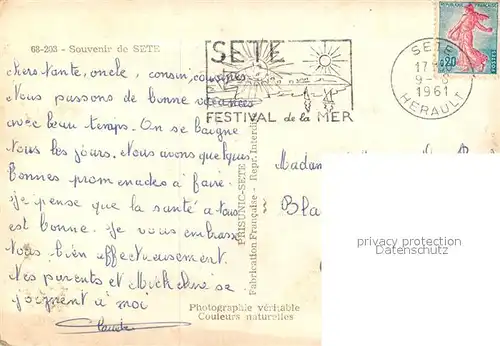 68-203 - Souvenir de SETE
SETE
FESTIVAL de la MER
REPUBLIQUE FRANÇAISE
0,20
POSTES
SETE
17H
9-8
1961
HERAULT
chers tante, oncle, cousin, cousines
Nous passons de bonne vacances
avec beau temps. On se baigne
tous les jours. Nous avons quelques
bonnes promenades à faire.
Je pense que la santé a tous
est bonne. Je vous embrasse
tous bien affectueusement.
Mes parents et Micheline se
joignent à moi
PRISUNIC-SETE
Fabrication Française - Repr. Interdite
Madame
Bla
privacy protection
Datenschutz
Photographie véritable
Couleurs naturelles